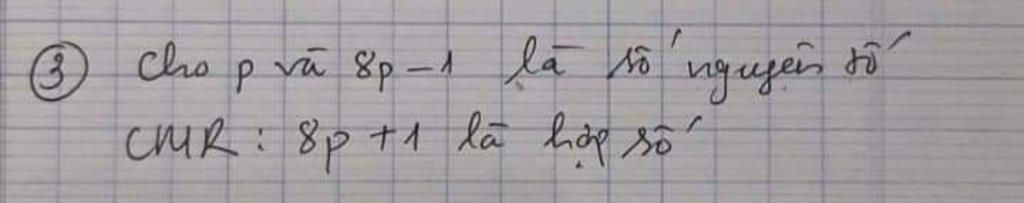 ③ Cho p và 8p - 1 là số nguyên tố
CMR : 8p + 1 là hợp số